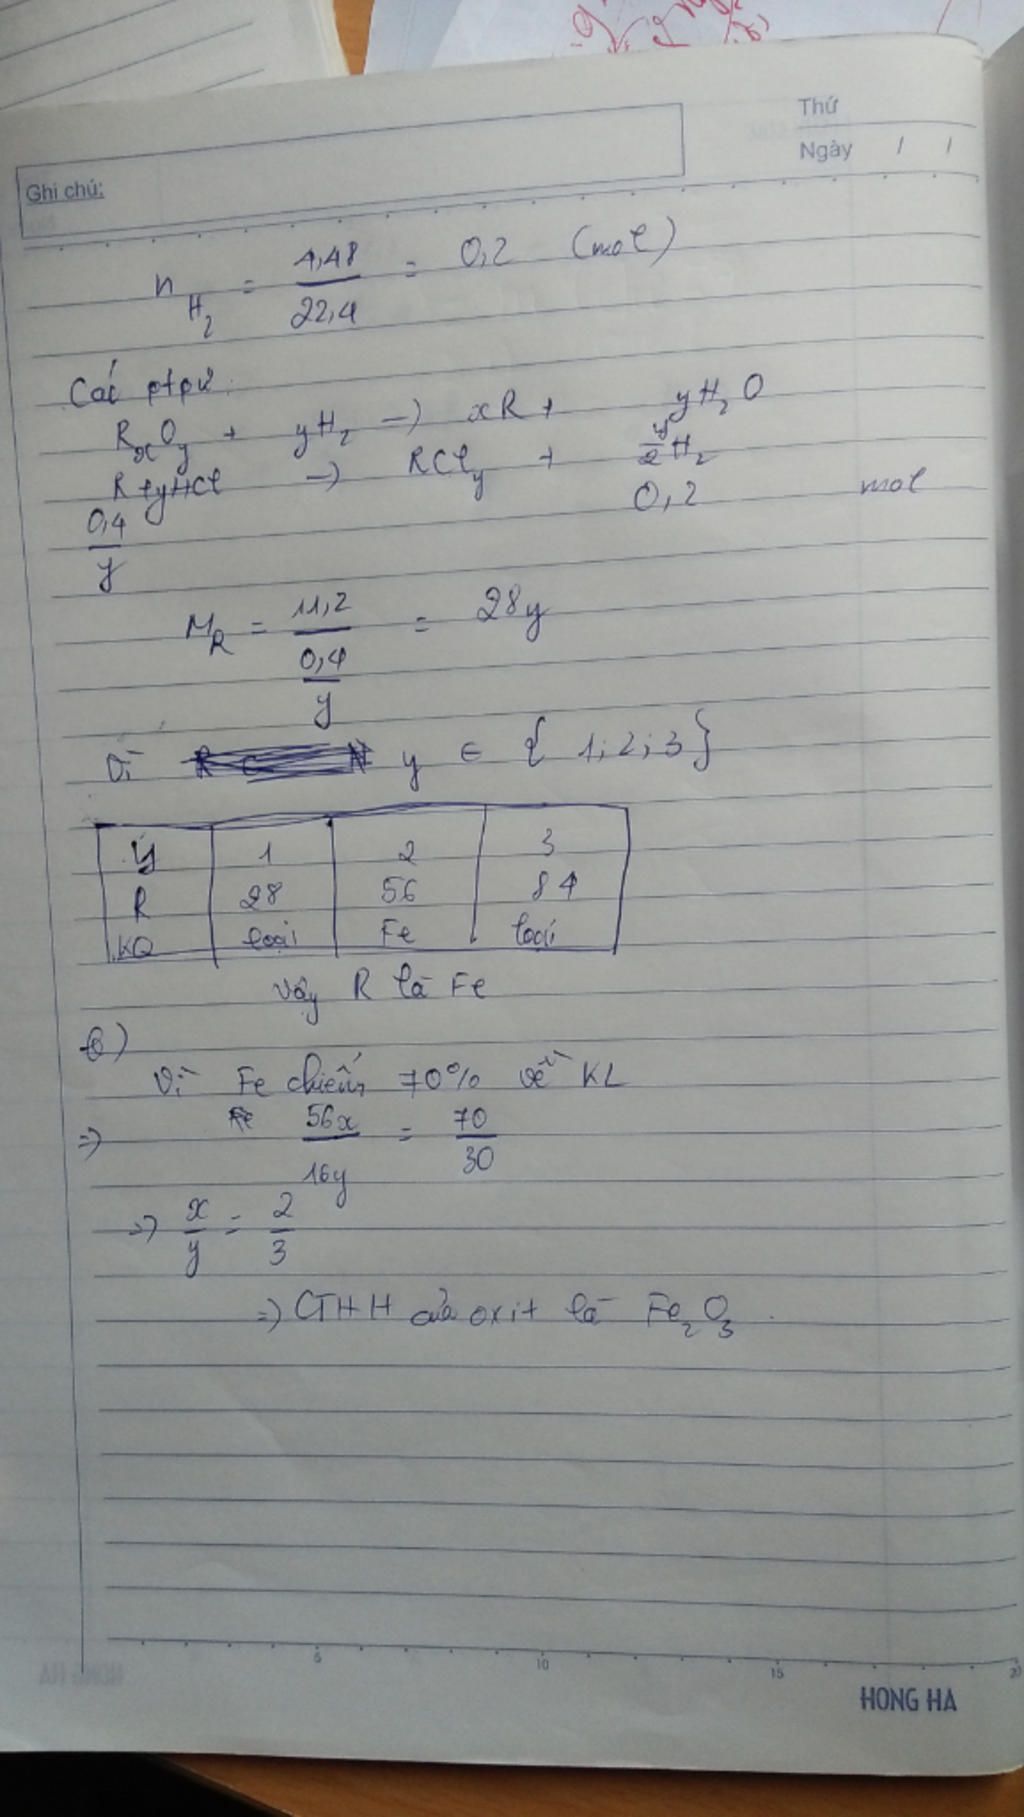 Thứ
Ngày / /
Ghi chú:
n H2 = 4,48/22,4 = 0,2 (mol)
Các ptpư:
RxOy + yH2 -> xR + yH2O
R + yHCl -> RCly + y/2 H2
0,4/y 0,2 mol
MR = 11,2/(0,4/y) = 28y
Vì y ∈ {1;2;3}
y 1 2 3
R 28 56 84
KQ loại Fe loại
Vậy R là Fe
b)
Vì Fe chiếm 70% về KL
=> 56x/16y = 70/30
=> x/y = 2/3
=> CTHH của oxit là Fe2O3.
5 10 15 20
HONG HA